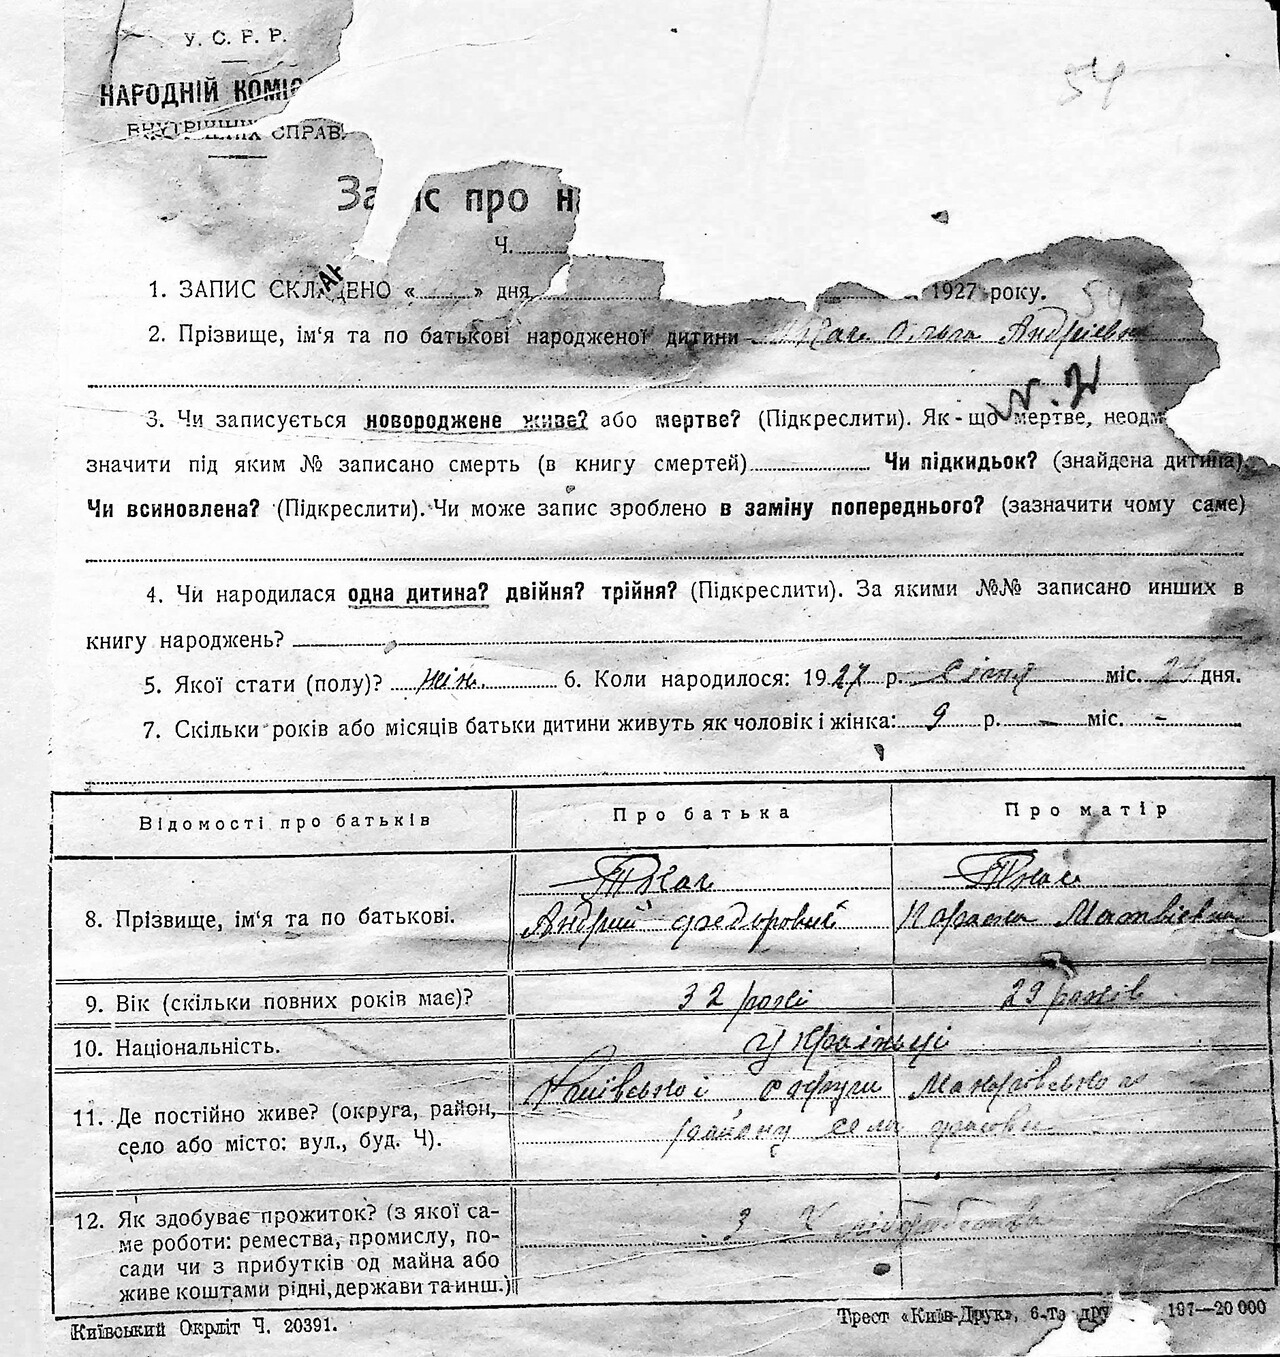 У. С. Р. Р.
54
НАРОДНІЙ КОМІС
ВНУТРІШНІХ СПРАВ.
За ис про н
Ч.
1. ЗАПИС СКЛАДЕНО « » дня 1927 року. 54
2. Прізвище, ім‘я та по батькові народженої дитини Ткач Ольга Андріевна
3. Чи записується новороджене живе? або мертве? (Підкреслити). Як-що мертве, неодм
значити під яким № записано смерть (в книгу смертей) Чи підкидьок? (знайдена дитина).
Чи всиновлена? (Підкреслити). Чи може запис зроблено в заміну попереднього? (зазначити чому саме)
4. Чи народилася одна дитина? двійня? трійня? (Підкреслити). За якими №№ записано инших в
книгу народжень?
5. Якої стати (полу)? жін. 6. Коли народилося: 1927 р. Січня міс. 24 дня.
7. Скільки років або місяців батьки дитини живуть як чоловік і жінка: 9 р. – міс. –
Відомості про батьків Про батька Про матір
Ткач Ткач
8. Прізвище, ім‘я та по батькові. Андрий Федорович Матвієвна
9. Вік (скільки повних років має)? 32 роки 29 років
10. Національність. Українці
11. Де постійно живе? (округа, район, село або місто: вул., буд. Ч). округи
району села
12. Як здобуває прожиток? (з якої са-
ме роботи: ремества, промислу, по-
сади чи з прибутків од майна або
живе коштами рідні, держави та инш.) З
Київський Окрліт Ч. 20391.
Трест «Київ-Друк», 6-та дру 197—20 000